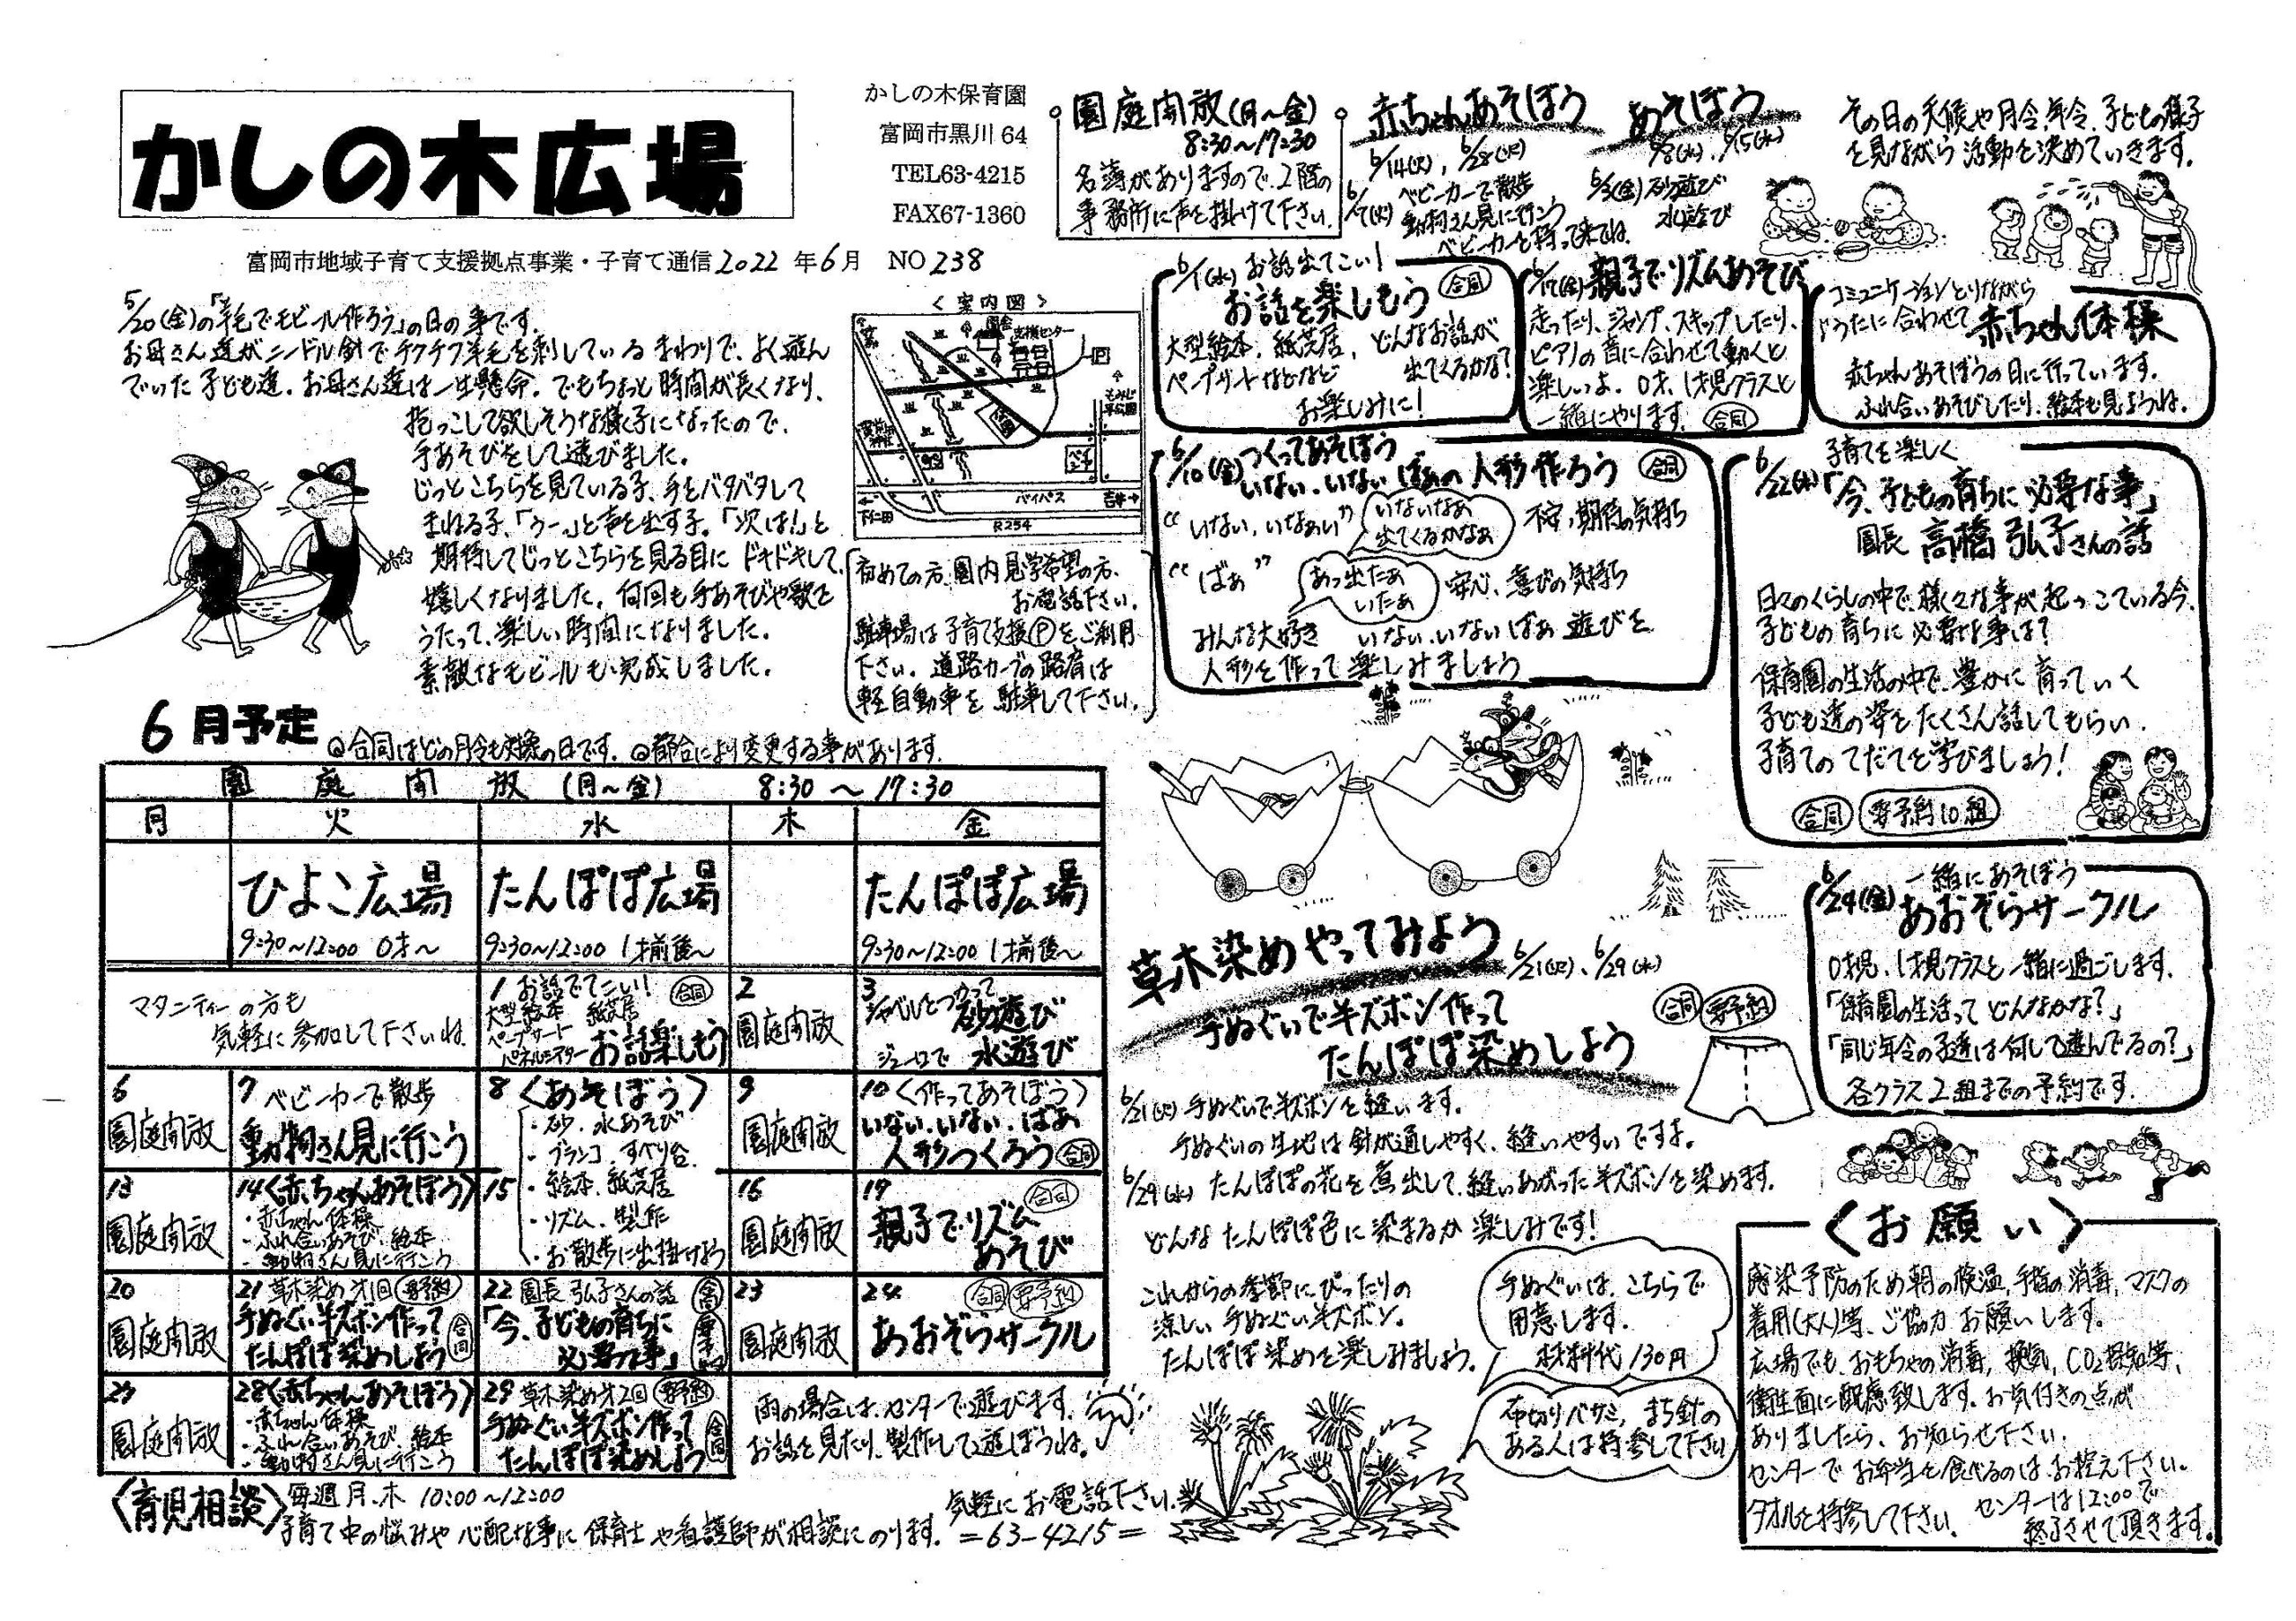 かしの木広場
かしの木保育園
富岡市黒川 64
TEL63-4215
FAX67-1360
富岡市地域子育て支援拠点事業・子育て通信 2022 年 6月 NO 238
5/20(金)の「羊毛でモビール作ろう」の日の事です。
お母さん達がニードル針でチクチク羊毛を刺しているまわりで、よく遊ん
でいた子ども達。お母さん達は一生懸命。でもちょっと時間が長くなり、
抱っこして欲しそうな様子になったので、
手あそびをして遊びました。
じっとこちらを見ている子、手をバタバタして
まねる子、「うー」と声を出す子。「次は!」と
期待してじっとこちらを見る目にドキドキして、
嬉しくなりました。何回も手あそびや歌を
うたって、楽しい時間になりました。
素敵なモビールも完成しました。
<案内図>
支援センター
もみじ平公園
バイパス
R254
下仁田
吉井
初めての方、園内見学希望の方、
お電話下さい。
駐車場は子育て支援Ⓟをご利用
下さい。道路カーブの路肩は
軽自動車を駐車して下さい。
園庭開放(月~金)
8:30~17:30
名簿がありますので、2階の
事務所に声を掛けて下さい。
赤ちゃんあそぼう
6/14(火)、6/28(火)
6/7(火) ベビーカーで散歩
動物さん見に行こう
ベビーカーを持って来てね。
あそぼう
6/8(水)、6/15(水)
6/3(金)砂遊び
水遊び
その日の天候や月令年令、子どもの様子
を見ながら活動を決めていきます。
6/1(水) お話出てこい!
お話を楽しもう 合同
大型絵本、紙芝居、どんなお話が
ペープサートなどなど 出てくるかな?
お楽しみに!
6/17(金)親子でリズムあそび
走ったり、ジャンプ、スキップしたり、
ピアノの音に合わせて動くと
楽しいよ。0才、1才児クラスと
一緒にやります。 合同
コミュニケーションとりながら
うたに合わせて 赤ちゃん体操
赤ちゃんあそぼうの日に行っています。
ふれ合いあそびしたり、絵本も見ようね。
6/10(金)つくってあそぼう
いない、いないばぁの人形作ろう 合同
“いない、いなぁい” いないなぁ 出てくるかなぁ 不安、期待の気持ち
“ばぁ” あっ出たぁ いたぁ 安心、喜びの気持ち
みんな大好き いない、いないばぁ 遊びを
人形を作って楽しみましょう
6/22(水) 子育てを楽しく
「今、子どもの育ちに必要な事」
園長 高橋 弘子さんの話
日々のくらしの中で、様々な事が起っている今、
子どもの育ちに必要な事は?
保育園の生活の中で、豊かに育っていく
子ども達の姿をたくさん話してもらい、
子育てのてだてを学びましょう!
合同 要予約10組
6月予定 ◎合同はどの月令も対象の日です。◎都合により変更する事があります。
園庭開放 (月~金) 8:30 ~ 17:30
月 火 水 木 金
ひよこ広場 たんぽぽ広場 たんぽぽ広場
9:30~12:00 0才~ 9:30~12:00 1才前後~ 9:30~12:00 1才前後~
マタニティーの方も
気軽に参加して下さいね
1 お話でてこい! 合同
大型絵本 紙芝居
ペープサート
パネルシアター お話楽しもう
2 園庭開放
3 シャベルをつかって 砂遊び
ジョーロで 水遊び
6 園庭開放
7 ベビーカーで散歩
動物さん見に行こう
8〈あそぼう〉
・砂、水あそび
・ブランコ、すべり台
・絵本、紙芝居
・リズム、製作
・お散歩に出掛けよう
9 園庭開放
10〈作ってあそぼう〉
いない、いない、ばぁ
人形つくろう 合同
13 園庭開放
14〈赤ちゃんあそぼう〉
・赤ちゃん体操
・ふれ合いあそび、絵本
・動物さん見に行こう
15
16 園庭開放
17 合同
親子でリズム
あそび
20 園庭開放
21 草木染め 才1回 要予約
手ぬぐい半ズボン作って
たんぽぽ染めしよう 合同
22 園長 弘子さんの話 合同
「今、子どもの育ちに
必要な事」
23 園庭開放
24 合同 要予約
あおぞらサークル
27 園庭開放
28〈赤ちゃんあそぼう〉
・赤ちゃん体操
・ふれ合いあそび 絵本
・動物さん見に行こう
29 草木染め 才2回 要予約
手ぬぐい半ズボン作って
たんぽぽ染めしよう 合同
雨の場合は、センターで遊びます。
お話を見たり、製作して遊ぼうね。
〈育児相談〉毎週月、木 10:00~12:00
子育て中の悩みや心配な事に保育士や看護師が相談にのります。
気軽にお電話下さい
=63-4215=
草木染めやってみよう 6/21(火)、6/29(水)
手ぬぐいで半ズボン作って
たんぽぽ染めしよう
合同 要予約
6/21(火) 手ぬぐいで半ズボンを縫います。
手ぬぐいの生地は針が通しやすく、縫いやすいですよ。
6/29(水) たんぽぽの花を煮出して、縫いあがった半ズボンを染めます。
どんなたんぽぽ色に染まるか楽しみです!
これからの季節にぴったりの
涼しい手ぬぐい半ズボン。
たんぽぽ染めを楽しみましょう。
手ぬぐいは、こちらで
用意します。
材料代130円
布切りバサミ、まち針の
ある人は持参して下さい
6/24(金) 一緒にあそぼう
あおぞらサークル
0才児、1才児クラスと一緒に過ごします。
「保育園の生活ってどんなかな?」
「同じ年令の子達は何して遊んでるの?」
各クラス2組までの予約です。
〈お願い〉
感染予防のため朝の検温、手指の消毒、マスクの
着用(大人)等、ご協力お願いします。
広場でも、おもちゃの消毒、換気、CO2探知等、
衛生面に配慮致します。お気付きの点が
ありましたら、お知らせ下さい。
センターでお弁当を食べるのはお控え下さい。
タオルを持参して下さい。 センターは12:00で
終了させて頂きます。